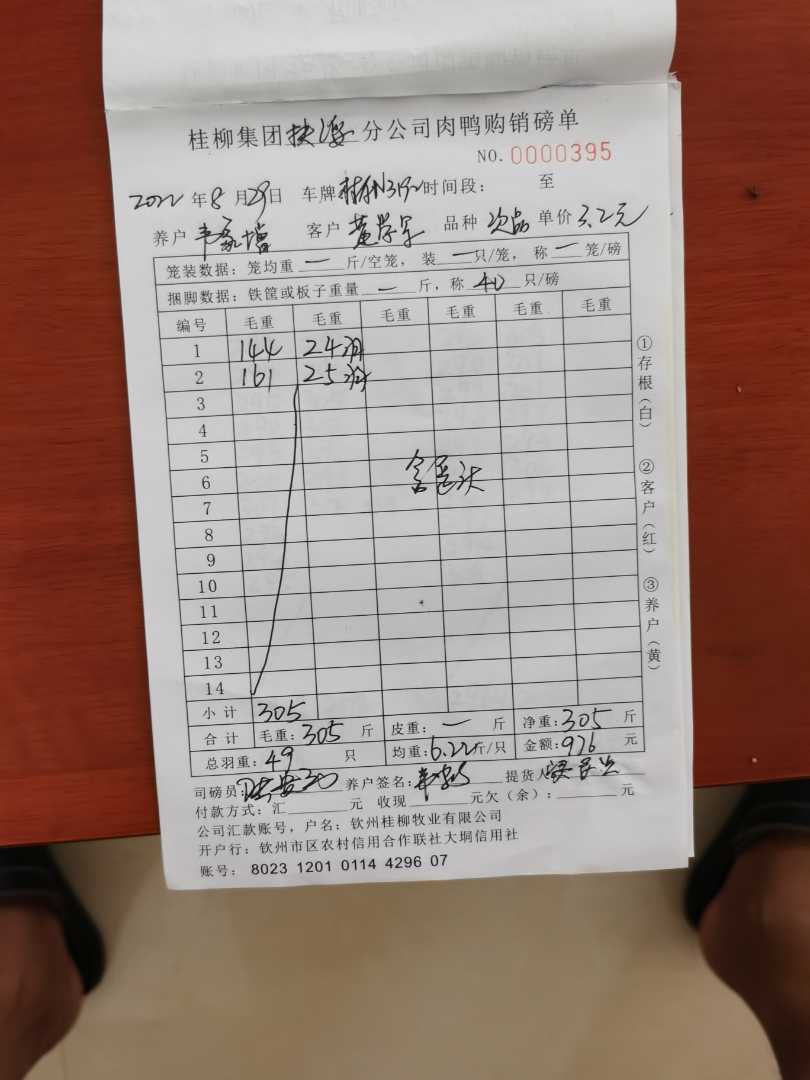 桂柳集团扶绥分公司肉鸭购销磅单
NO. 0000395
2022年8月29日 车牌 时间段： 至
养户 客户 黄学军 品种 次品 单价 3.2元
笼装数据：笼均重 一 斤/空笼，装 一 只/笼，称 一 笼/磅
捆脚数据：铁筐或板子重量 一 斤，称 40 只/磅
编号 毛重 毛重 毛重 毛重 毛重 毛重
1 144 24羽
2 161 25羽
3
4
5
6
7
8
9
10
11
12
13
14
小计 305
合计 毛重：305 斤 皮重：一 斤 净重：305 斤
总羽重：49 只 均重：6.22斤/只 金额：976 元
司磅员： 养户签名： 提货人
付款方式：汇 元 收现 元欠（余）： 元
公司汇款账号，户名：钦州桂柳牧业有限公司
开户行：钦州市区农村信用合作联社大垌信用社
账号：8023 1201 0114 4296 07
①存根（白）
②客户（红）
③养户（黄）